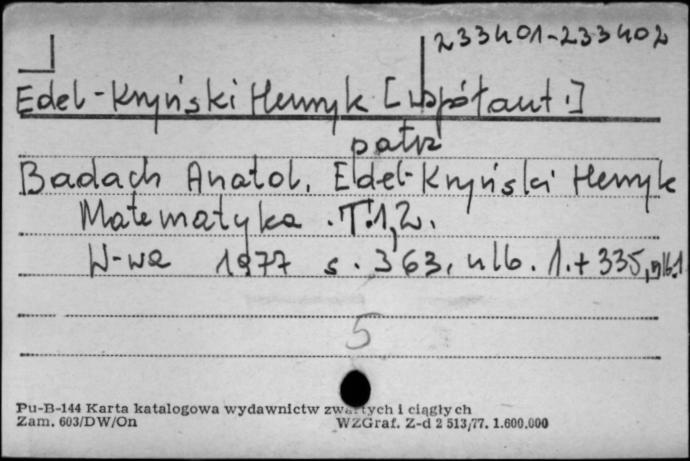 233401-233402
Edel-Kryński Henryk [współaut.]
patrz
Badach Anatol, Edel-Kryński Henryk
Matematyka. T. 1, 2.
W-wa 1977 s. 363, nlb. 1. + 335, nlb. 1
5
Pu-B-144 Karta katalogowa wydawnictw zwartych i ciągłych
Zam. 603/DW/On WZGraf. Z-d 2 513/77. 1.600.000